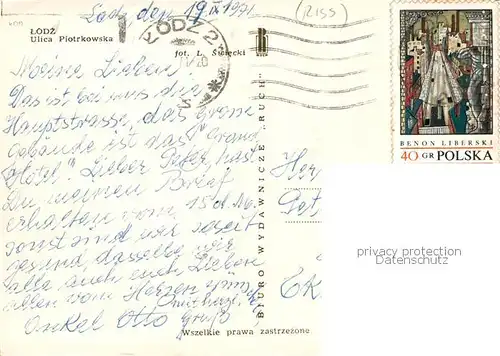 Łodz, den 19 IX 1971
(RISS)
ŁÓDŹ
Ulica Piotrkowska
fot. L. Święcki
ŁÓDŹ 2
Meine Lieben!
Das ist bei uns die
Hauptstrasse, das grosse
Gebäude ist das "Grand
Hotel". Lieber Peter, hast
Du meinen Brief
erhalten vom 15 d. M.
sonst sind wir soweit
gesund, dasselbe wir
alle auch euch Lieben
allen vom Herzen
Onkel Otto
Grüße
BIURO WYDAWNICZE "RUCH"
Wszelkie prawa zastrzeżone
BENON LIBERSKI
40 GR POLSKA
privacy protection
Datenschutz